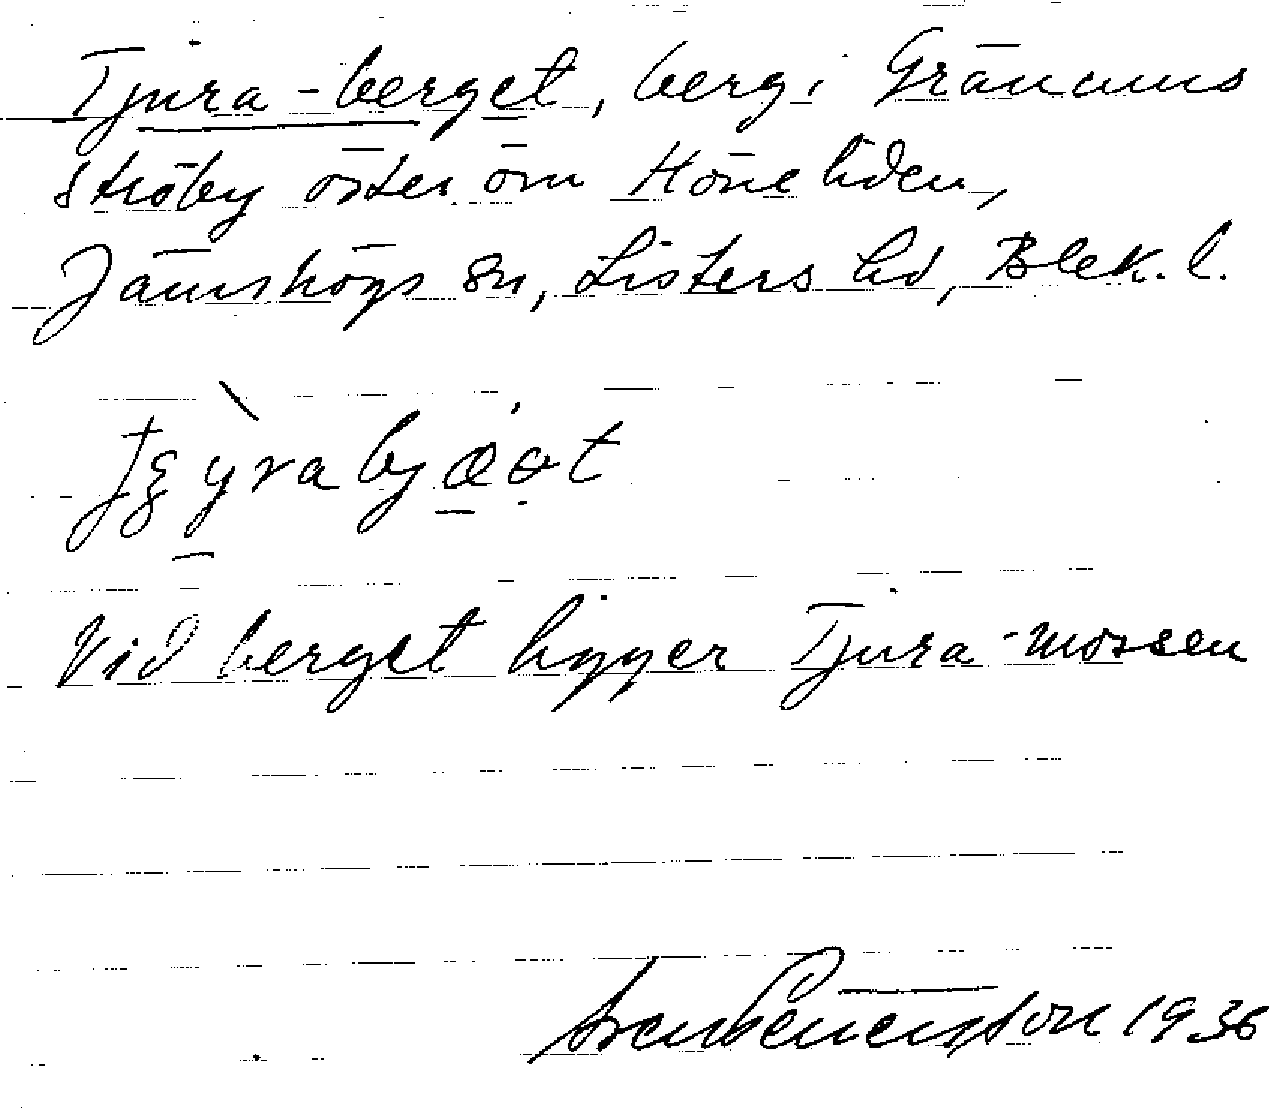 Tjura-berget, berg i Gränums
ströby öster om Höneliden,
Jämshögs sn, Listers hd, Blek. l.
Vid berget ligger Tjura-mossen
Sven Benson 1936